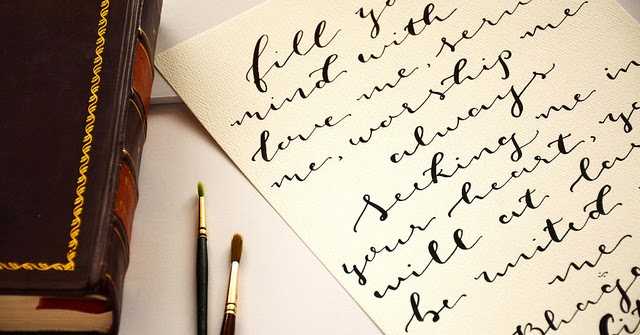 fill yo
mind with
love me, serve
me, worship me
always
Seeking me in
your heart, yo
will at las
be united
me
Bhaga